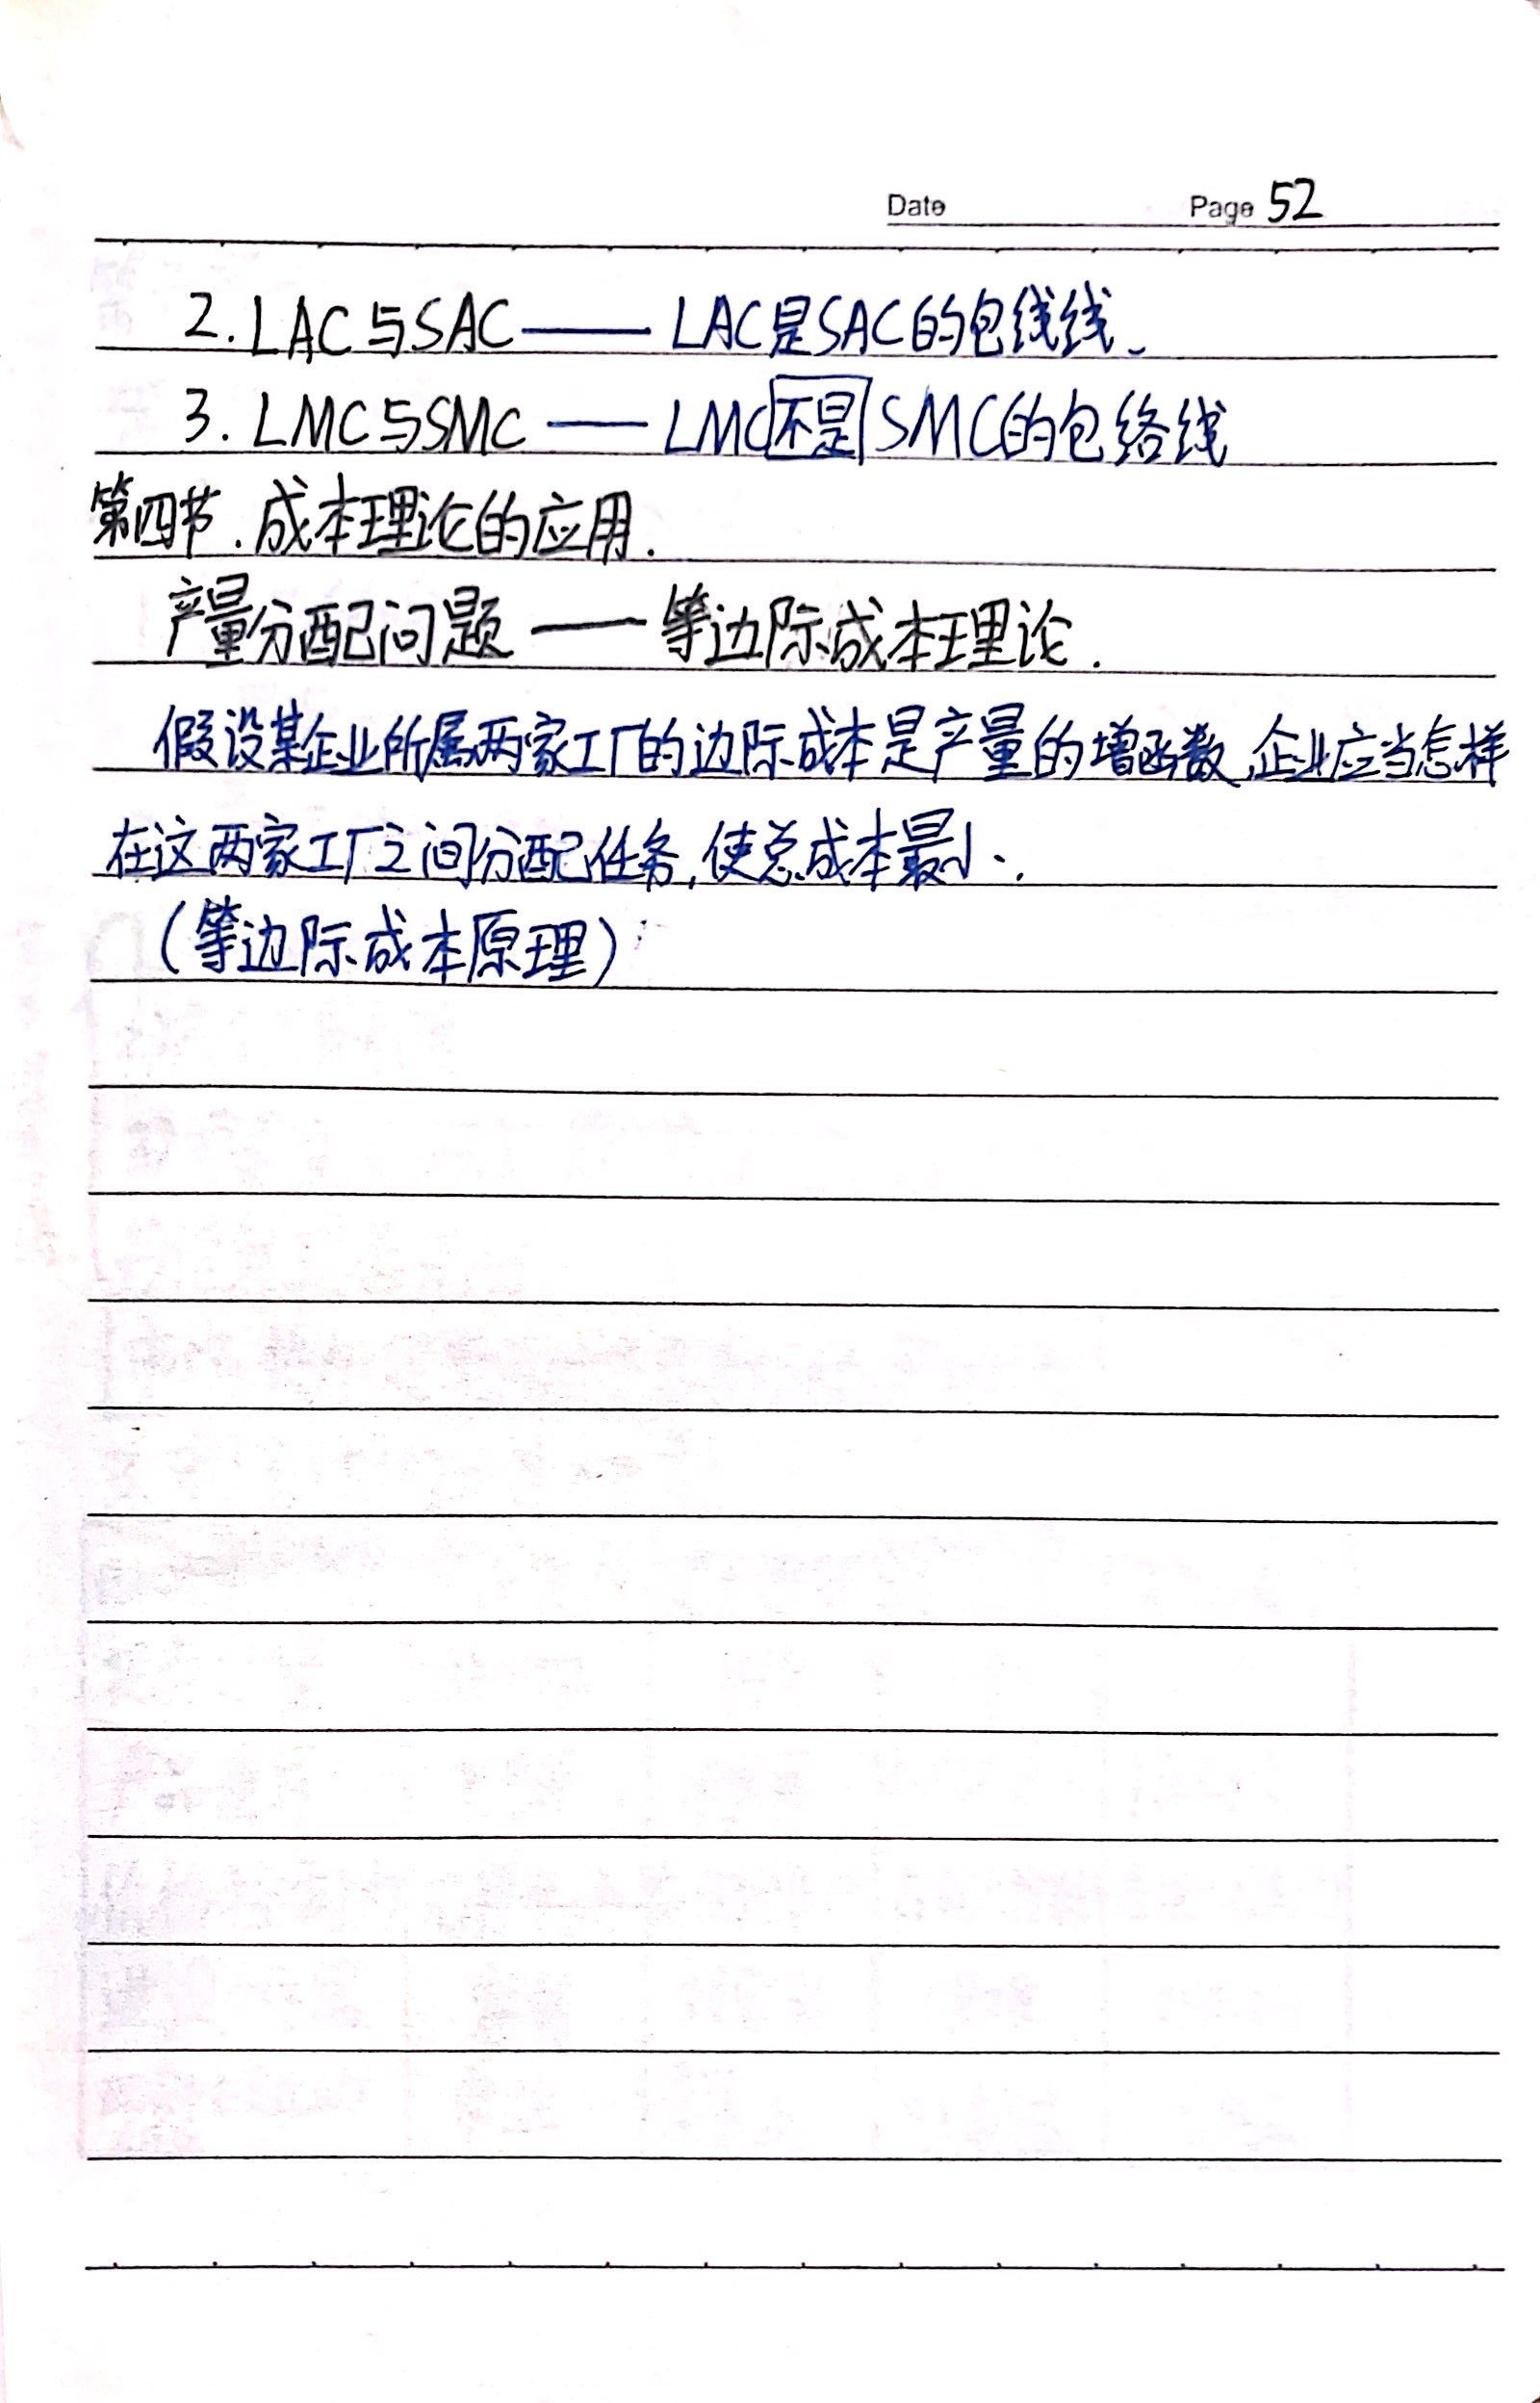 Date Page 52
2. LAC与SAC —— LAC是SAC的包线线、
3. LMC与SMC —— LMC不是SMC的包络线
第四节.成本理论的应用.
产量分配问题 —— 等边际成本理论.
假设某企业所属两家工厂的边际成本是产量的增函数,企业应当怎样
在这两家工厂之间分配任务,使总成本最小.
(等边际成本原理)